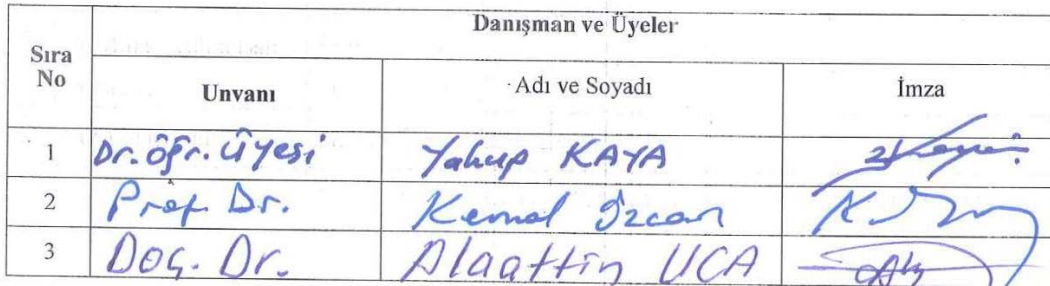 Danışman ve Üyeler
Sıra No Unvanı Adı ve Soyadı İmza
1 Dr. öğr. üyesi Yakup KAYA
2 Prof. Dr. Kemal Özcan
3 Doç. Dr. Alaattin UCA